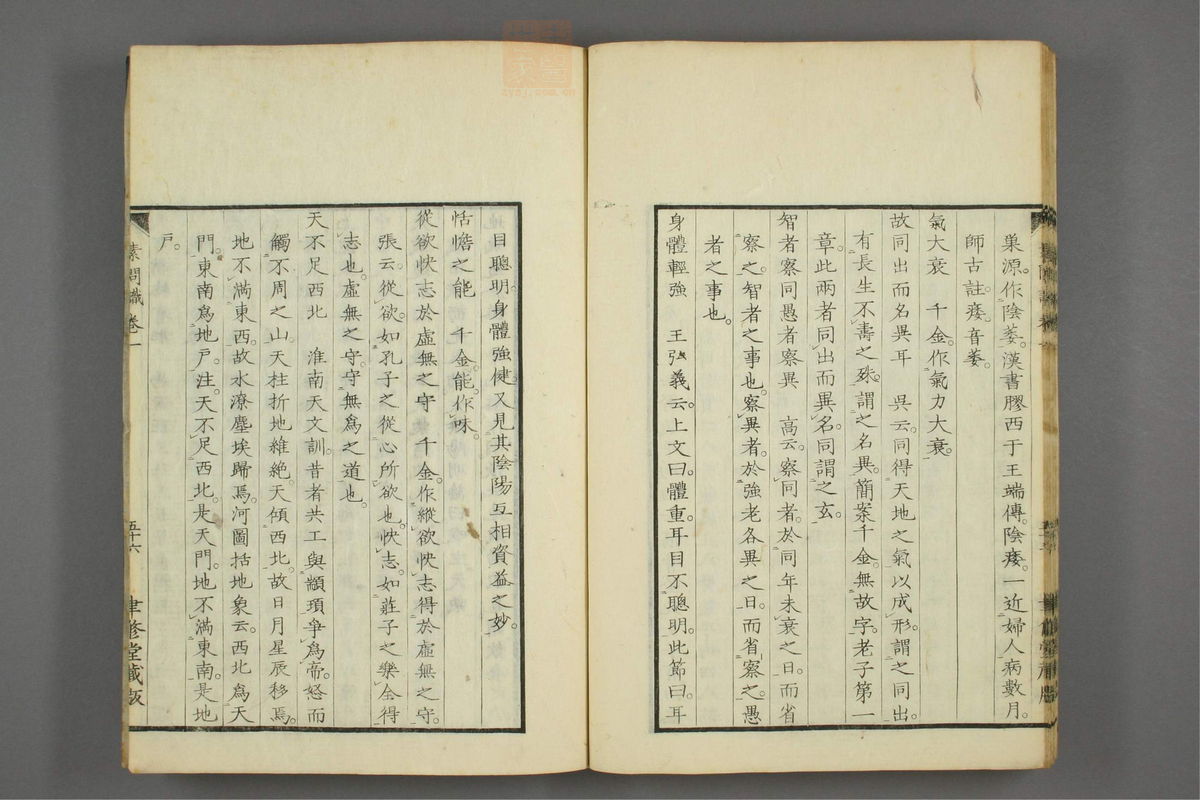 巢源。作陰萎。漢書膠西于王端傳。陰痿。一近婦人病數月。
師古註。痿。音萎。
氣大衰　千金。作氣力大衰。
故同出而名異耳　吳云。同得天地之氣以成形。謂之同出。
有長生不壽之殊。謂之名異。簡案千金。無故字。老子第一
章。此兩者同出而異名。同謂之玄。
智者察同愚者察異　高云。察同者。於同年未衰之日。而省
察之。智者之事也。察異者。於強老各異之日。而省察之。愚
者之事也。
身體輕強　王弘義云。上文曰。體重。耳目不聰明。此節曰。耳
目聰明。身體強健。又見其陰陽互相資益之妙。
恬憺之能　千金。能。作味。
從欲快志於虛無之守　千金。作縱欲快志得於虛無之守。
張云。從欲。如孔子之從心所欲也。快志。如莊子之樂全得
志也。虛無之守。守無爲之道也。
天不足西北　淮南天文訓。昔者共工與顓頊爭爲帝。怒而
觸不周之山。天柱折地維絶。天傾西北。故日月星辰移焉。
地不滿東西。故水潦塵埃歸焉。河圖括地象云。西北爲天
門。東南爲地戶。注。天不足西北。是天門。地不滿東南。是地
戶。
素問識卷一
五十六
聿修堂藏版